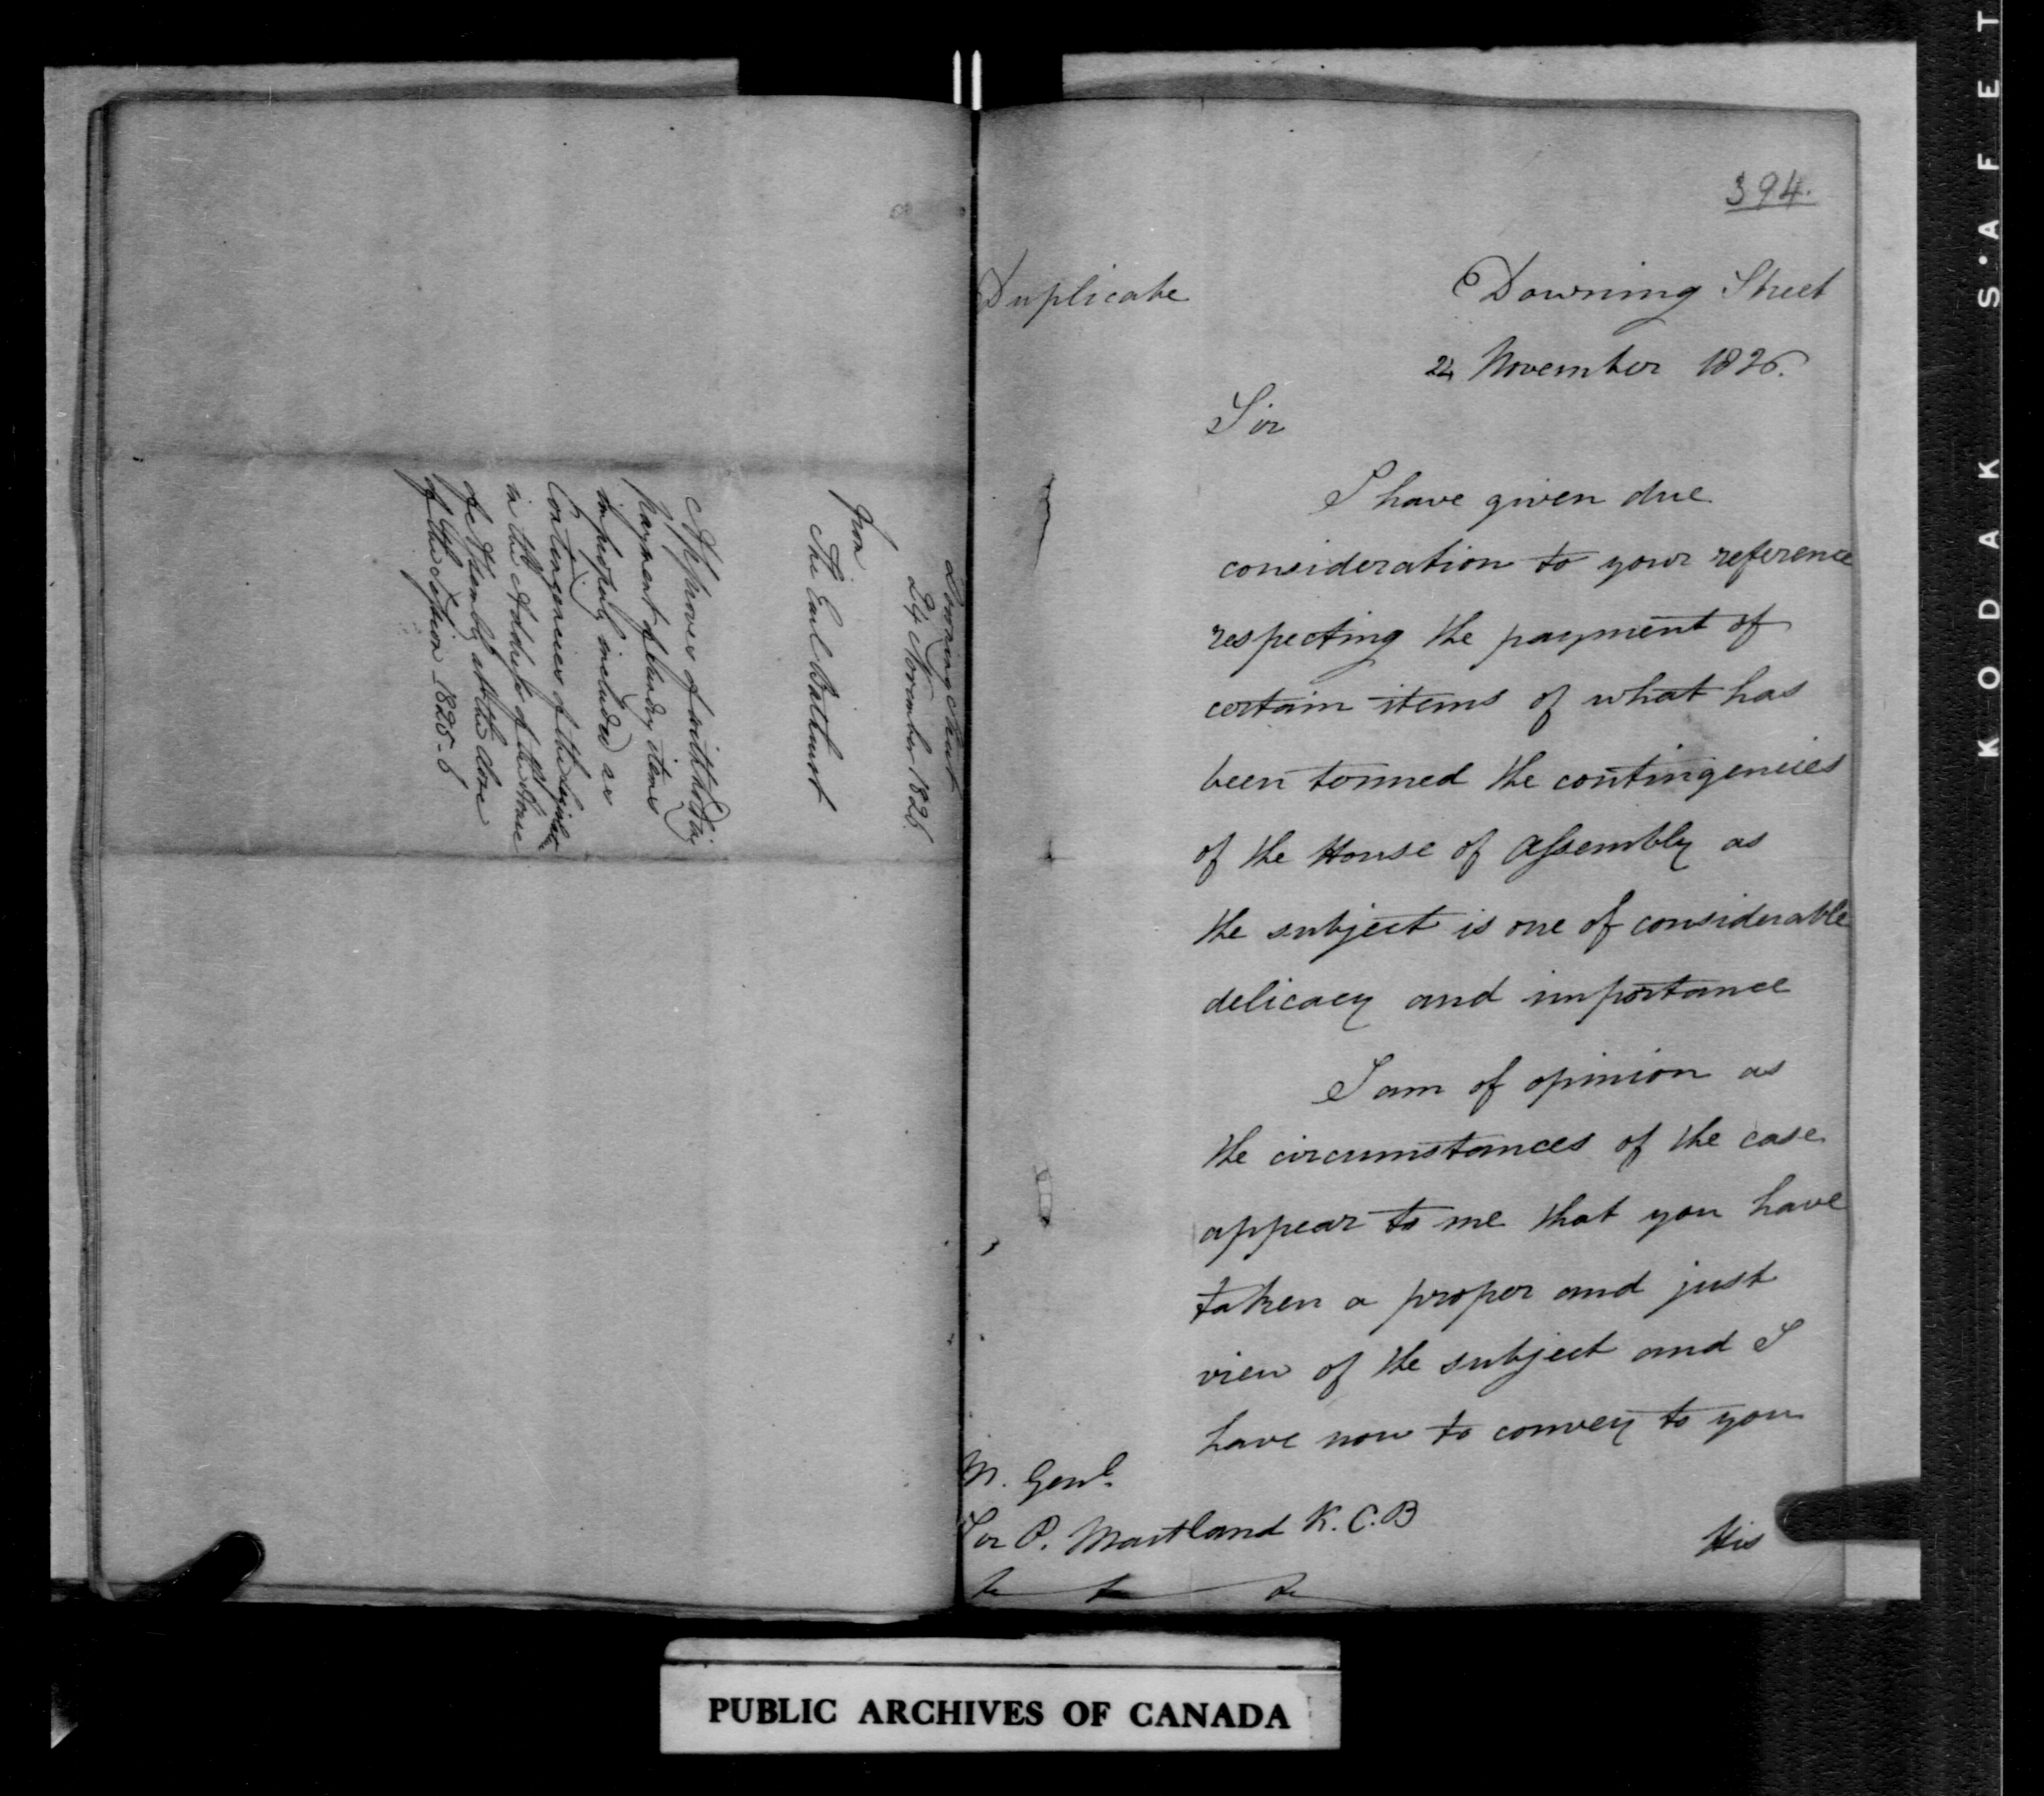 Downing Street
24 November 1826.
From
The Earl Bathurst
Approves of withholding
payment of sundry items
improperly included as
Contingencies of the Legislature
in the Address of the House
of Assembly at the close
of the Session 1825-6
394.
Duplicate
Downing Street
24 November 1826.
Sir
I have given due
consideration to your reference
respecting the payment of
certain items of what has
been termed the contingencies
of the House of Assembly as
the subject is one of considerable
delicacy and importance
I am of opinion as
the circumstances of the case
appear to me that you have
taken a proper and just
view of the subject and I
have now to convey to you
M. Genl.
Sir P. Maitland K.C.B
His
PUBLIC ARCHIVES OF CANADA
KODAK S·AFET